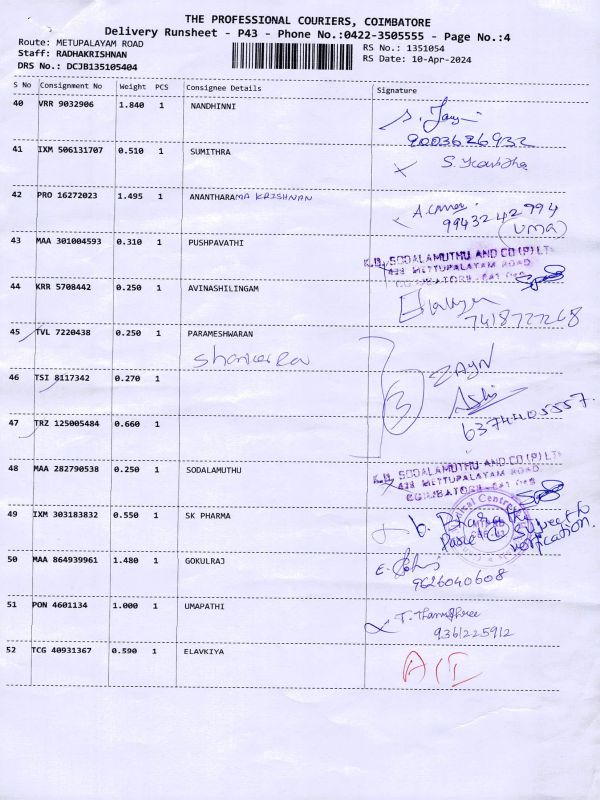 THE PROFESSIONAL COURIERS, COIMBATORE
Delivery Runsheet - P43 - Phone No.:0422-3505555 - Page No.:4
Route: METUPALAYAM ROAD RS No.: 1351054
Staff: RADHAKRISHNAN RS Date: 10-Apr-2024
DRS No.: DCJB135105404
S No Consignment No Weight PCS Consignee Details Signature
40 VRR 9032906 1.840 1 NANDHINNI
9003626932
41 IXM 506131707 0.510 1 SUMITHRA
42 PRO 16272023 1.495 1 ANANTHARAMA KRISHNAN
9943242994
(uma)
43 MAA 301004593 0.310 1 PUSHPAVATHI
K.B. SODALAMUTHU AND CO (P) LTD
428 METTUPALAYAM ROAD
COIMBATORE - 641 043
44 KRR 5708442 0.250 1 AVINASHILINGAM
7418727268
45 TVL 7220438 0.250 1 PARAMESHWARAN
46 TSI 8117342 0.270 1
3 ZAYN
47 TRZ 125005484 0.660 1
6374405557.
48 MAA 282790538 0.250 1 SODALAMUTHU
K.B. SODALAMUTHU AND CO (P) LTD
428 METTUPALAYAM ROAD
COIMBATORE - 641 043
49 IXM 303183832 0.550 1 SK PHARMA
Subject to
verification.
50 MAA 864939961 1.480 1 GOKULRAJ
9626040608
51 PON 4601134 1.000 1 UMAPATHI
T. Thanushree
9361225912
52 TCG 40931367 0.590 1 ELAVKIYA